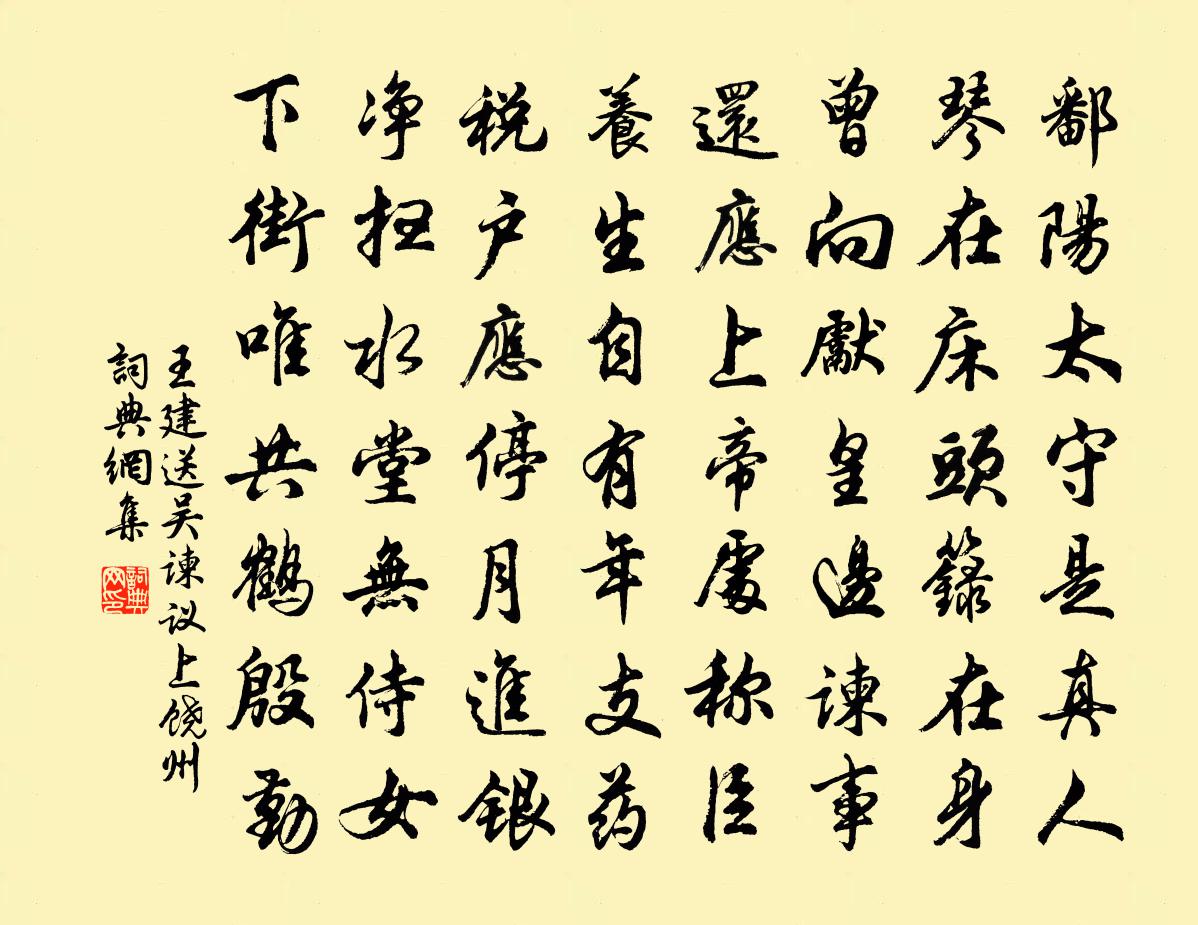 鄱陽太守是真人
琴在床頭籙在身
曾向獻皇邊諫事
還應上帝處称臣
養生自有年支药
税户應停月進銀
净扫水堂無侍女
下街唯共鶴殷勤
王建送吴諫议上饶州
詞典網集
詞典
网印